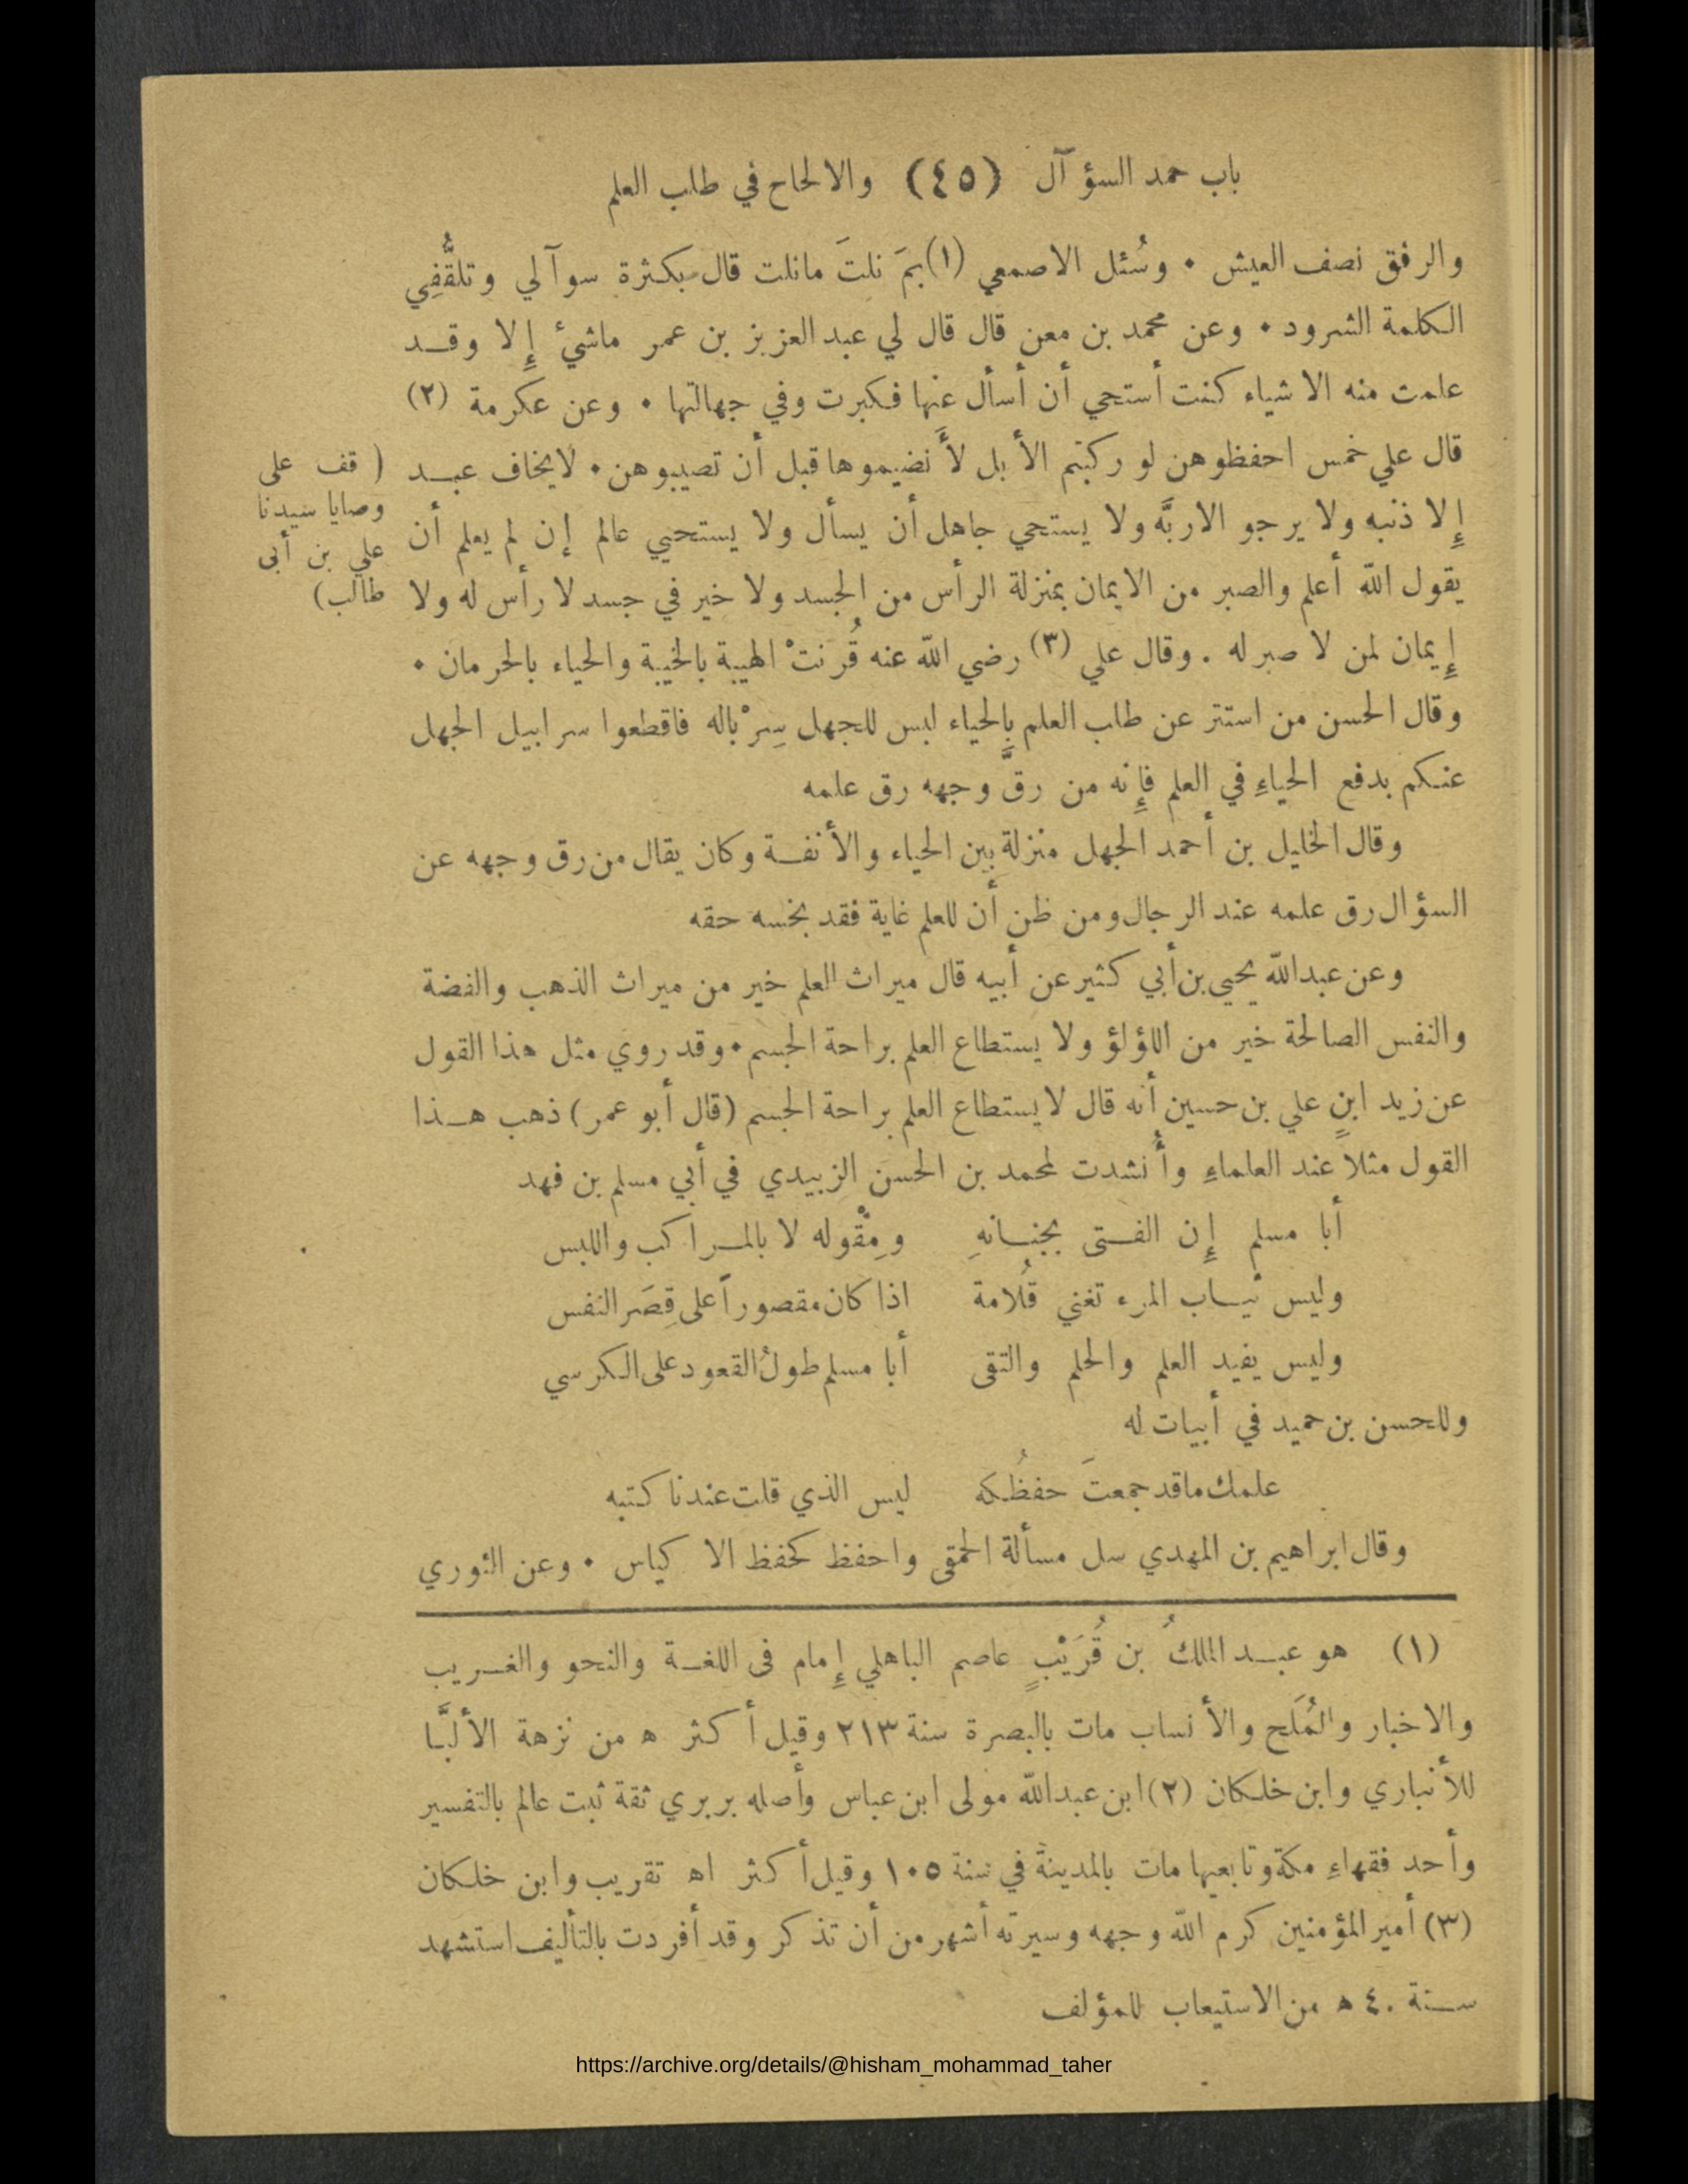 باب حمد السؤآل (٤٥) والالحاح في طلب العلم
والرفق نصف العيش • وسُئل الاصمعي (١) بمَ نلتَ مانلت قال بكثرة سوآلي وتلقُّفِي
الكلمة الشرود • وعن محمد بن معن قال قال لي عبد العزيز بن عمر ماشئ إِلا وقد
علمت منه الا شياء كنت أستحي أن أسأل عنها فكبرت وفي جهالتها • وعن عكرمة (٢)
قال علي خمس احفظوهن لو ركبتم الأبل لأَنضيموها قبل أن تصيبوهن • لايخاف عبد
إِلا ذنبه ولا يرجو الاربَّه ولا يستحي جاهل أن يسأل ولا يستحيي عالم إن لم يعلم أن
يقول الله أعلم والصبر من الايمان بمنزلة الرأس من الجسد ولا خير في جسد لا رأس له ولا
إِيمان لمن لا صبر له . وقال علي (٣) رضي الله عنه قُرنتْ الهيبة بالخيبة والحياء بالحرمان •
وقال الحسن من استتر عن طلب العلم بالحياء لبس للجهل سِرْباله فاقطعوا سرابيل الجهل
عنكم بدفع الحياءِ في العلم فإِنه من رقَّ وجهه رق علمه
وقال الخليل بن أحمد الجهل منزلة بين الحياء والأنفة وكان يقال من رق وجهه عن
السؤال رق علمه عند الرجال ومن ظن أن للعلم غاية فقد بخسه حقه
وعن عبدالله يحيى بن أبي كثير عن أبيه قال ميراث العلم خير من ميراث الذهب والفضة
والنفس الصالحة خير من اللؤلؤ ولا يستطاع العلم براحة الجسم • وقد روي مثل هذا القول
عن زيد ابن علي بن حسين أنه قال لايستطاع العلم براحة الجسم (قال أبو عمر) ذهب هذا
القول مثلاً عند العلماءِ وأُنشدت لمحمد بن الحسن الزبيدي في أبي مسلم بن فهد
أبا مسلم إِن الفتى بجنانهِ ومِقْوله لا بالمراكب واللبس
وليس ثياب المرء تغني قُلامة اذا كان مقصوراً على قِصَر النفس
وليس يفيد العلم والحلم والتقى أبا مسلم طولُ القعود على الكرسي
وللحسن بن حميد في أبيات له
علمك ماقد جمعتَ حفظُكه ليس الذي قلت عندنا كتبه
وقال ابراهيم بن المهدي سل مسألة الحمقى واحفظ كحفظ الا كياس • وعن الثوري
( قف على
وصايا سيدنا
علي بن أبى
طالب)
(١) هو عبد الملكُ بن قُرَيْبٍ عاصم الباهلي إِمام فى اللغة والنحو والغريب
والاخبار والمُلَح والأنساب مات بالبصرة سنة ٢١٣ وقيل أكثر ه من نزهة الألبَّا
للأنباري وابن خلكان (٢) ابن عبدالله مولى ابن عباس وأصله بربري ثقة ثبت عالم بالتفسير
وأحد فقهاءِ مكة وتابعيها مات بالمدينة في سنة ١٠٥ وقيل أكثر اه تقريب وابن خلكان
(٣) أمير المؤمنين كرم الله وجهه وسيرته أشهر من أن تذكر وقد أفردت بالتأليف استشهد
سنة ٤٠ ه من الاستيعاب للمؤلف
https://archive.org/details/@hisham_mohammad_taher